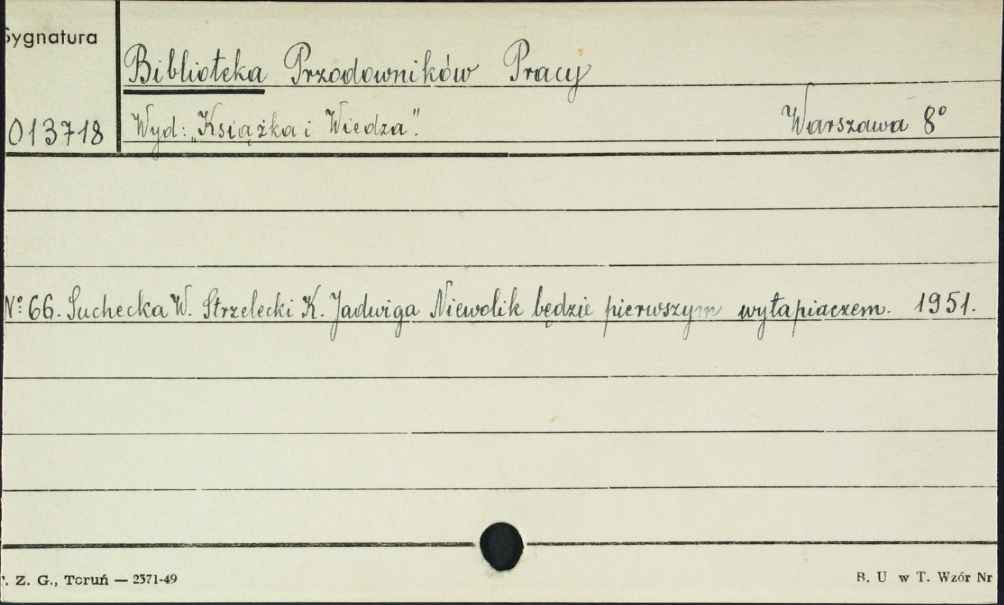 Sygnatura
Biblioteka Przodowników Pracy
013718 Wyd: „Książka i Wiedza". Warszawa 8°
N° 66. Suchecka W. Strzelecki K. Jadwiga Niewolik będzie pierwszym wytapiaczem. 1951.
. Z. G., Toruń — 2371-49
B. U w T. Wzór Nr